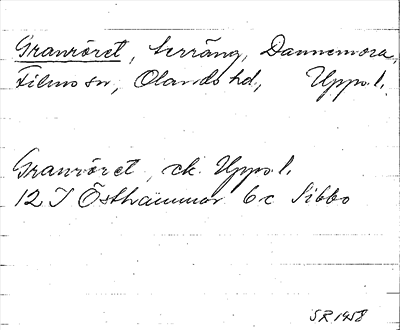 Granröret, terräng, Dannemora,
Films sn, Olands hd, Upps. l.
Granröret, ek. Upps. l.
12 I Östhammar 6c Sibbo
SR 1958